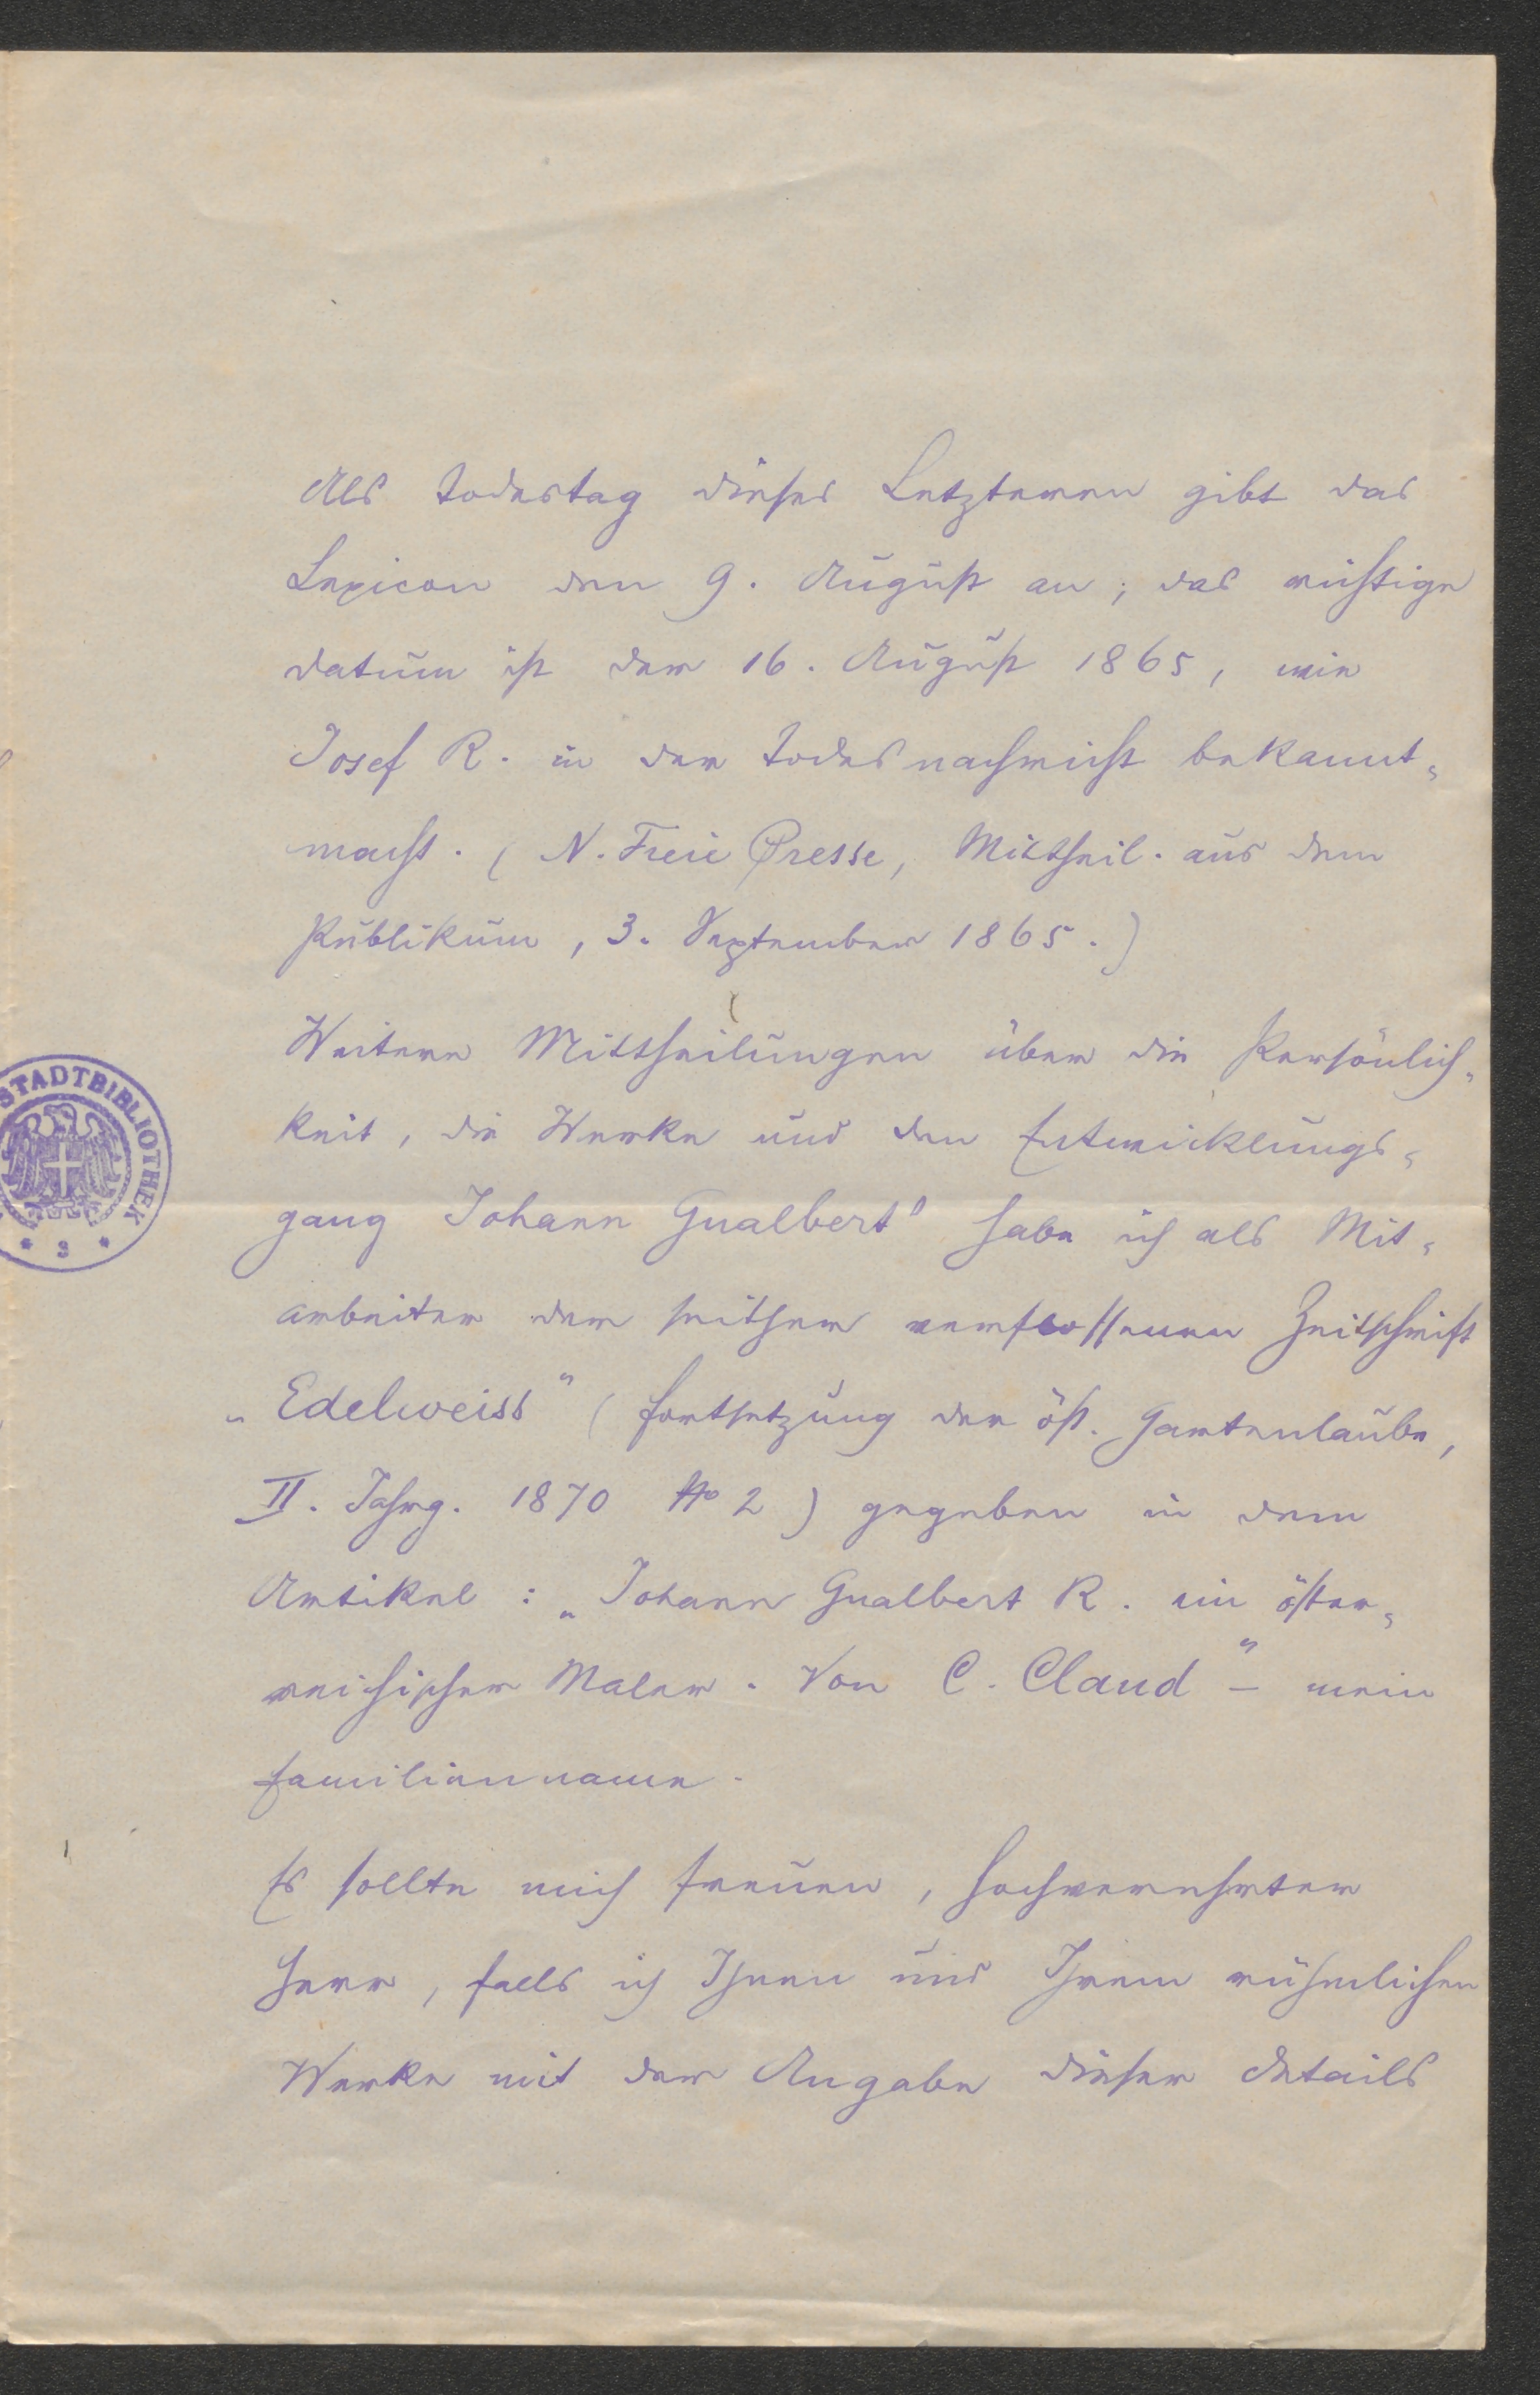 Als Todestag dieses Letzteren gibt das
Lexicon den 9. August an; das richtige
Datum ist der 16. August 1865, wie
Josef R. in der Todesnachricht bekannt-
macht. (N. Freie Presse, Mittheil. aus dem
Publikum, 3. September 1865.)
Weitere Mittheilungen über die Persönlich-
keit, die Werke und den Entwicklungs-
gang Johann Gualbert' habe ich als Mit-
arbeiter der seither verflossenen Zeitschrift
„Edelweiss" (Fortsetzung der öst. Gartenlaube,
II. Jahrg. 1870 No 2) gegeben in dem
Artikel: „Johann Gualbert R. ein öster-
reichischer Maler. Von C. Claud" – mein
Familienname.
Es sollte mich freuen, hochverehrter
Herr, falls ich Ihnen und Ihrem rühmlichen
Werke mit der Angabe dieser Details
STADTBIBLIOTHEK
* 3 *